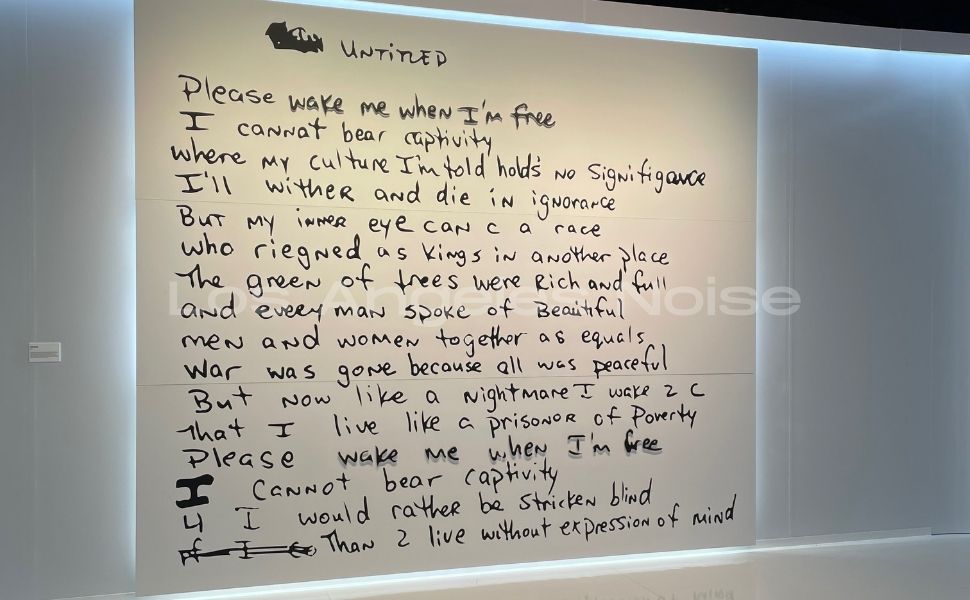 UNTITLED
Please wake me when I'm free
I cannot bear captivity
where my culture I'm told holds no signifigance
I'll wither and die in ignorance
But my inner eye can c a race
who riegned as kings in another place
The green of trees were rich and full
and every man spoke of Beautiful
men and women together as equals
War was gone because all was peaceful
But now like a nightmare I wake 2 c
That I live like a prisonor of Poverty
Please wake me when I'm free
I cannot bear captivity
4 I would rather be stricken blind
Than 2 live without expression of mind
Los Angeles Noise